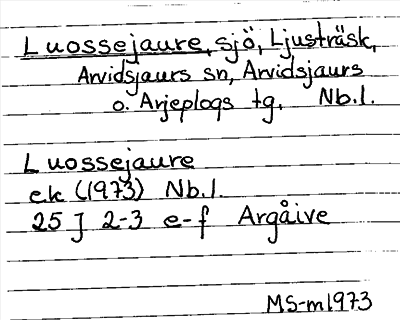 Luossejaure, sjö, Ljusträsk,
Arvidsjaurs sn, Arvidsjaurs
o. Arjeplogs tg. Nb.l.
Luossejaure
ek (1973) Nb.l.
25 J 2-3 e-f Argåive
MS-m1973